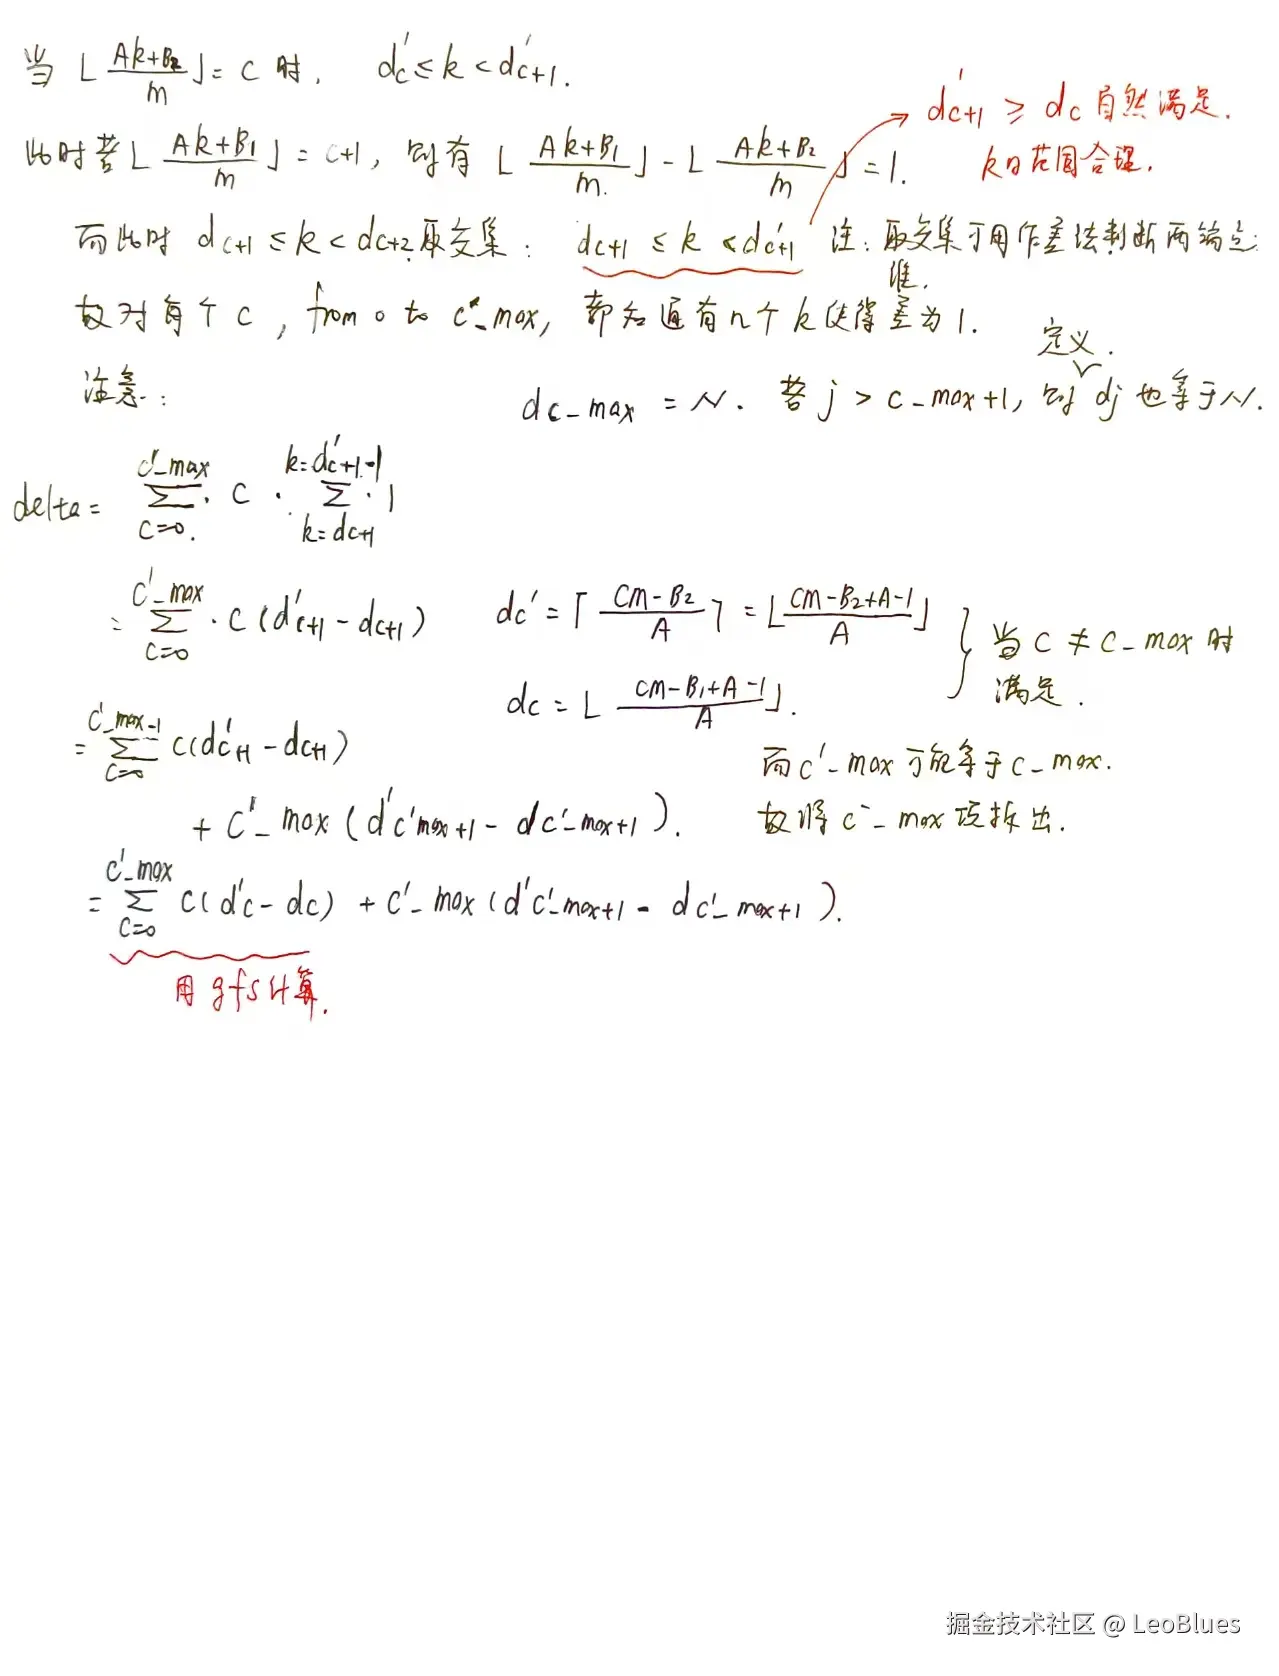 当 ⌊(Ak+B₂)/m⌋ = c 时, d'c ≤ k < d'c+1.
d'c+1 ≥ dc 自然满足.
k的范围合理.
此时若 ⌊(Ak+B₁)/m⌋ = c+1, 则有 ⌊(Ak+B₁)/m.⌋ - ⌊(Ak+B₂)/m⌋ = 1.
而此时 dc+1 ≤ k < dc+2. 取交集: dc+1 ≤ k < d'c+1 注: 取交集可用作差法判断两端点
谁.
故对每个 c, from 0 to c'_max, 都知道有n个 k 使得差为1.
定义.
注意: dc_max = N. 若 j > c_max+1, 则 dj 也等于N.
delta = ∑(c=0 → c'_max) · c · ∑(k=dc+1 → k=d'c+1-1) · 1
= ∑(c=0 → c'_max) · c (d'c+1 - dc+1) dc' = ⌈(cm-B₂)/A⌉ = ⌊(cm-B₂+A-1)/A⌋
dc = ⌊(cm-B₁+A-1)/A⌋.
} 当 c ≠ c_max 时
满足.
= ∑(c=0 → c'_max-1) c(d'c+1 - dc+1)
+ c'_max (d'c'max+1 - dc'_max+1).
而 c'_max 可能等于 c_max.
故将 c'_max 项拆出.
= ∑(c=0 → c'_max) c(d'c - dc) + c'_max (d'c'_max+1 - dc'_max+1).
用 gfs计算.
掘金技术社区 @ LeoBlues